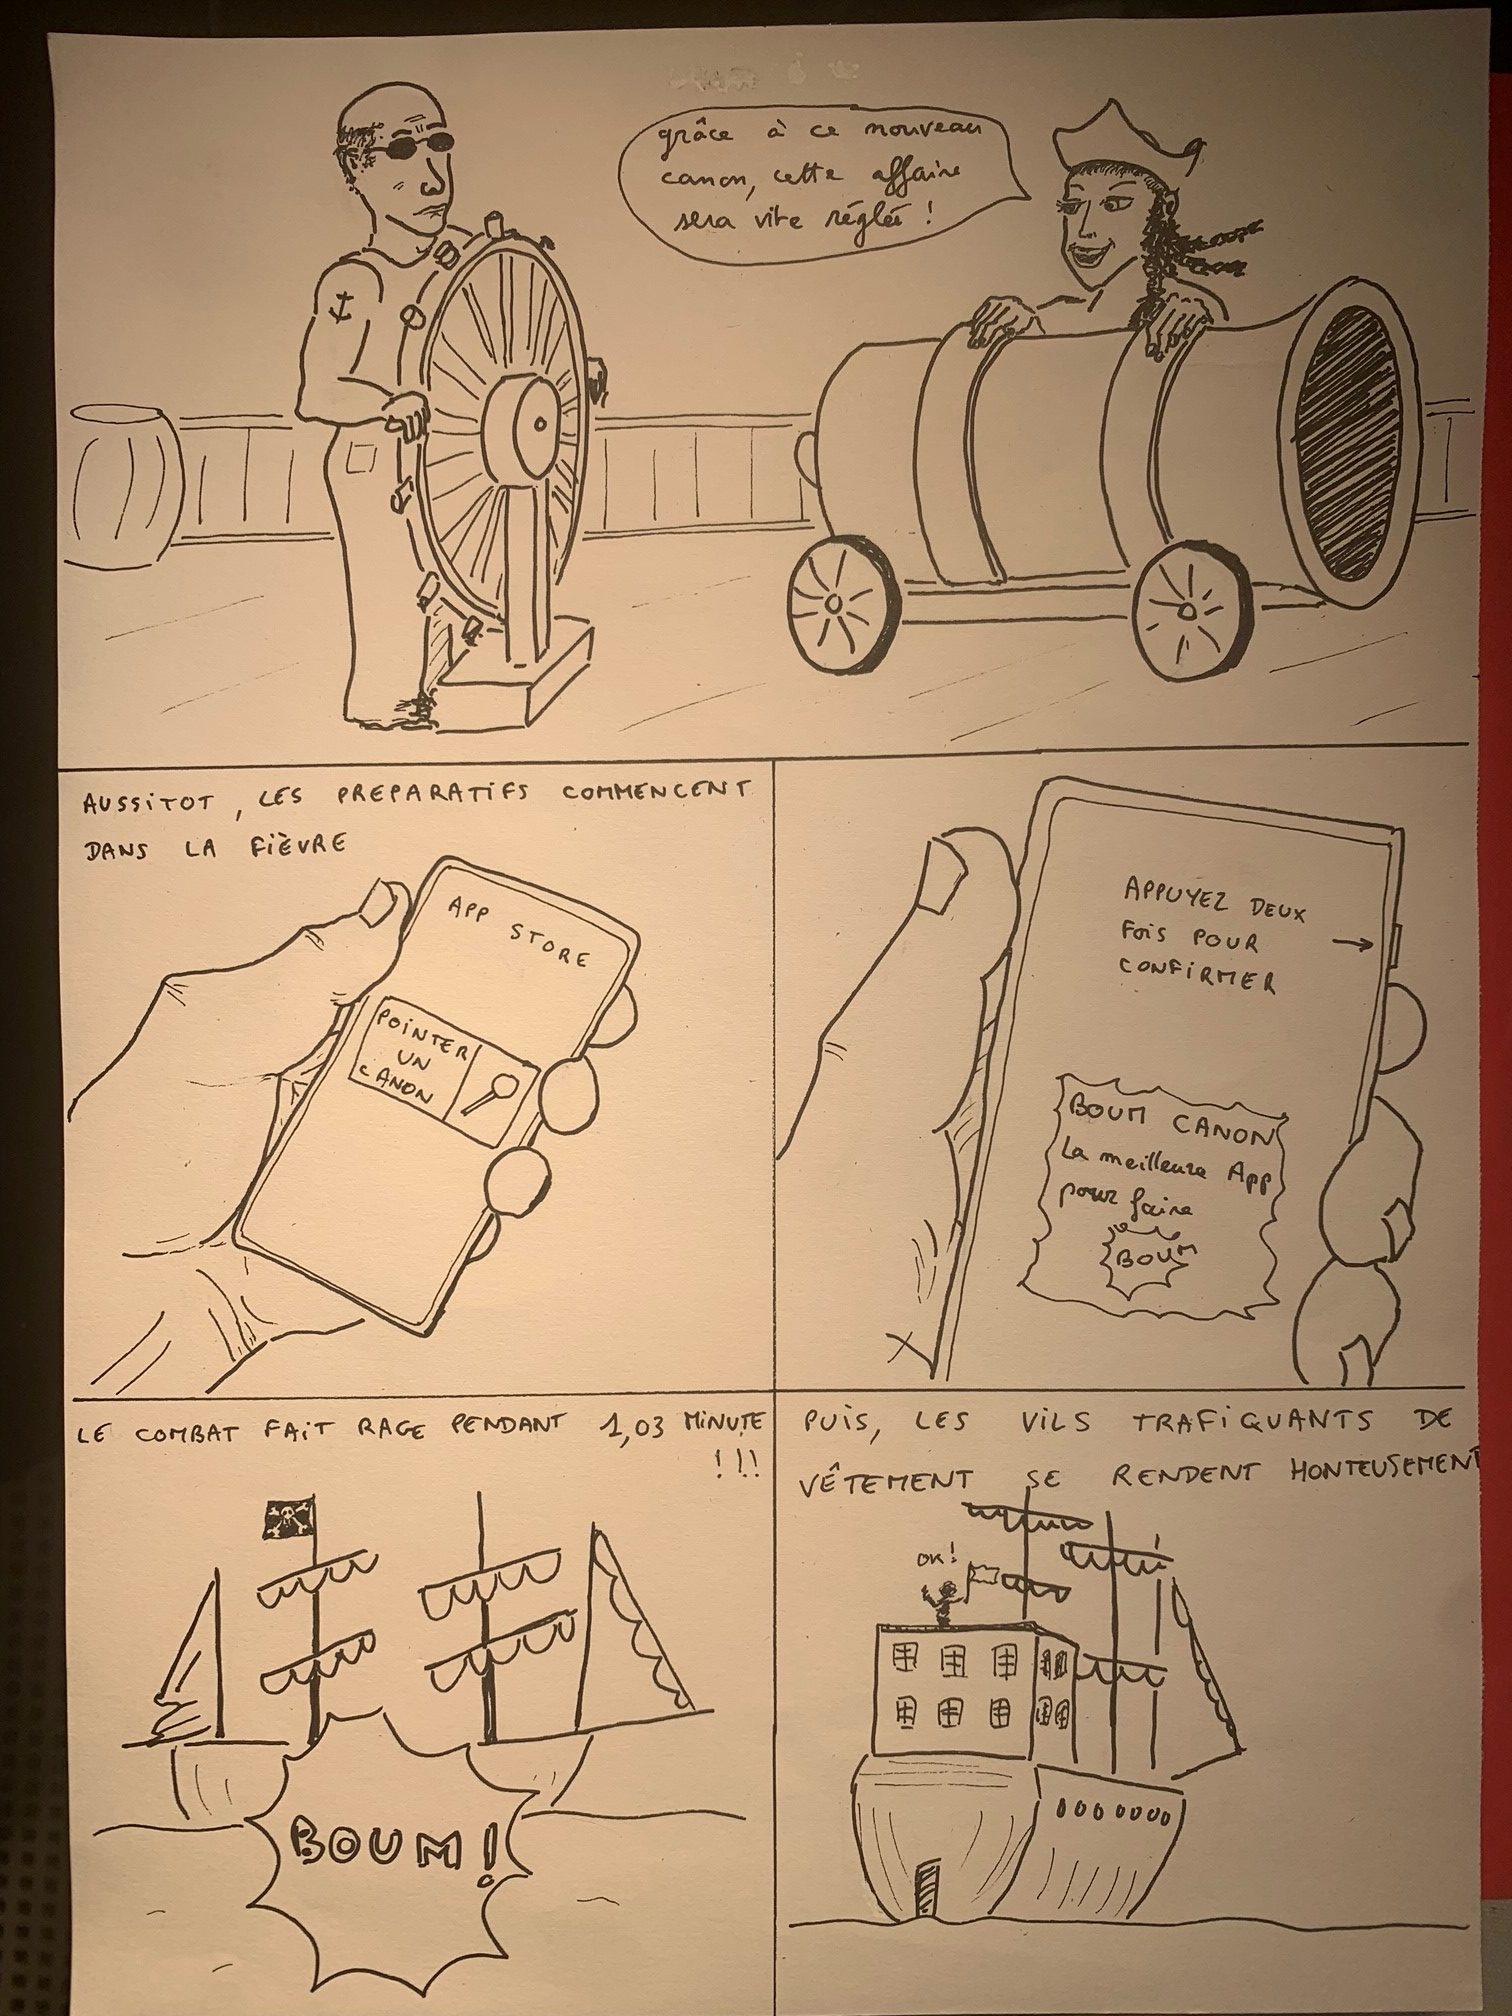 grâce à ce nouveau
canon, cette affaire
sera vite réglée !
AUSSITOT, LES PREPARATIFS COMMENCENT
DANS LA FIÈVRE
APP
STORE
POINTER
UN
CANON
APPUYEZ DEUX
FOIS POUR
CONFIRMER
BOUM CANON
La meilleure App
pour faire
BOUM
LE COMBAT FAIT RAGE PENDANT 1,03 MINUTE
!!!
BOUM!
PUIS, LES VILS TRAFIQUANTS DE
VÊTEMENT SE RENDENT HONTEUSEMENT
OK!